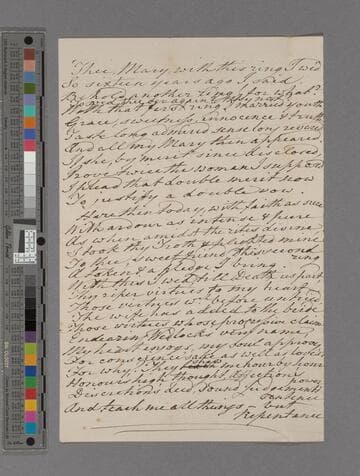 Thee, Mary, with this ring I wed
So sixteen years ago I said
Behold another ring! for what?
To wed thee o'er again? why not
With that first ring I married youth
Grace, sweetness, innocence & truth
Taste long admired sense long revered
And all my Mary then appeared
If she, by merit since disclosed
Prove twice the woman I supposed
I plead that double merit now
To justify a double vow.
Here then today, with faith as sure
With ardour as intense & pure
As when amidst the rites divine
I took thy troth & plighted mine
To thee, sweet friend, this second
ring
A token & a pledge I bring
With this I wed, till Death us part
Thy riper virtues to my heart
Those virtues w^h before untried
The wife has added to the bride
Those virtues whose progressive claim
Endearing Wedlock's very name
My heart enjoys, my soul approves
For conscience sake as well as love's
For why? They shew me hour by hour
Honour's high thought, Affection's
Discretion's deed, sound Judgment's
sentence
And teach me all things — but
Repentance